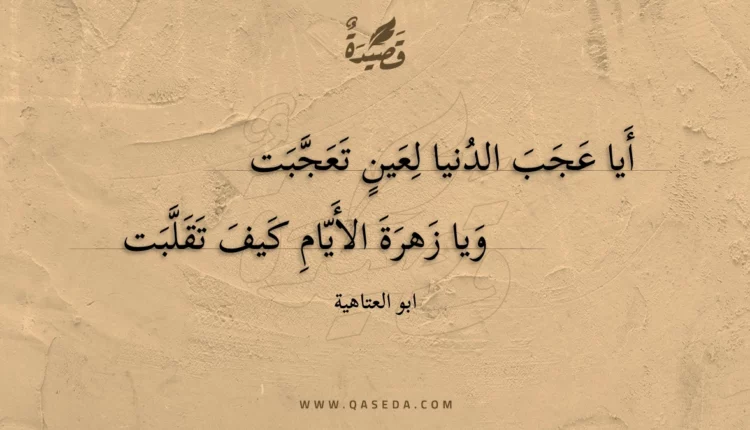 قَصِيدَةٌ
أَيا عَجَبَ الدُنيا لِعَينٍ تَعَجَّبَت
وَيا زَهرَةَ الأَيّامِ كَيفَ تَقَلَّبَت
ابو العتاهية
WWW.QASEDA.COM